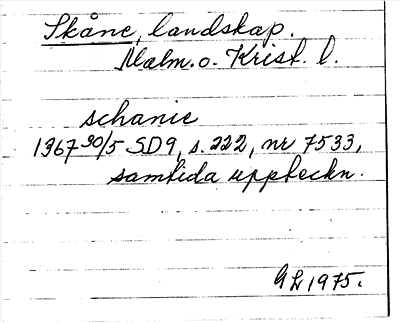 Skåne, landskap.
Malm. o. Krist. l.
schanie
1367 30/5 SD9, s. 222, nr 7533,
samtida uppteckn.
GL 1975.